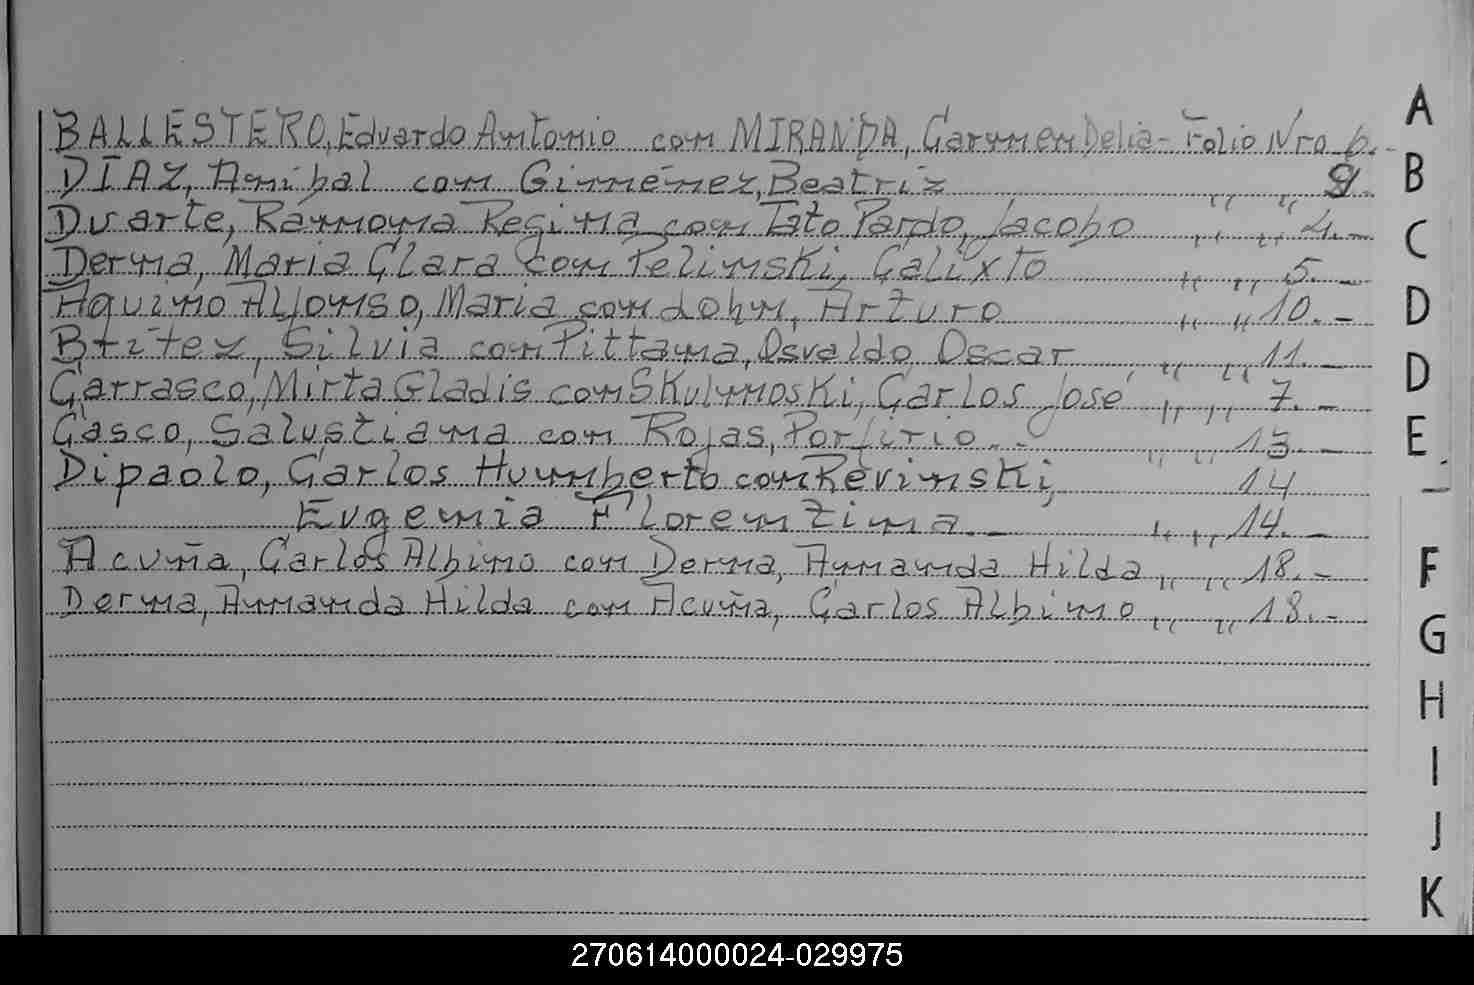 BALLESTERO, Eduardo Antonio con MIRANDA, Carmen Delia - Folio Nro 6.-
DIAZ, Anibal con Giménez, Beatriz " " 9.
Duarte, Ramona Regina con Tato Pardo, Jacobo " " 4.-
Derna, Maria Clara con Pelinski, Calixto " " 5.-
Aquino Alfonso, Maria con Dohn, Arturo " " 10.-
Btítez, Silvia con Pittana, Osvaldo Oscar " " 11.-
Carrasco, Mirta Gladis con Skulynoski, Carlos José " " 7.-
Casco, Salustiana con Rojas, Porfirio.- " " 13.-
Dipaolo, Carlos Humberto con Revinski, 14
Eugenia Florentina.- " " 14.-
Acuña, Carlos Albino con Derna, Amanda Hilda " " 18.-
Derna, Amanda Hilda con Acuña, Carlos Albino " " 18.-
A
B
C
D
D
E
F
G
H
I
J
K
270614000024-029975